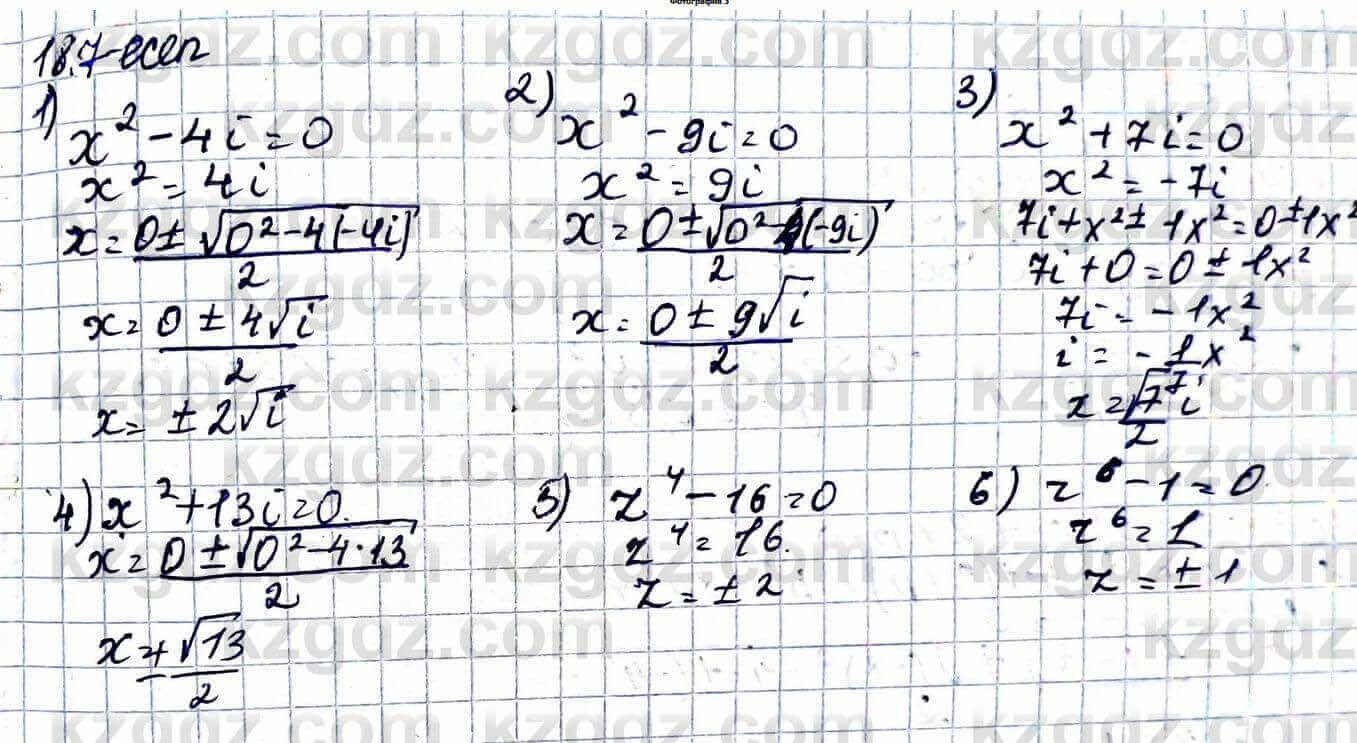 Фотография 3
18.7-есеп
1)
x² - 4i = 0
x² = 4i
x = (0 ± √(0² - 4(-4i)))/2
x = (0 ± 4√i)/2
x = ± 2√i
2)
x² - 9i = 0
x² = 9i
x = (0 ± √(0² - 4(-9i)))/2
x = (0 ± 9√i)/2
3)
x² + 7i = 0
x² = -7i
7i + x² ± 1x² = 0 ± 1x²
7i + 0 = 0 ± 1x²
7i = -1x²
i = -1x²/7
x = √7 i/2
4) x² + 13i = 0.
x = (0 ± √(0² - 4·13))/2
x = ± √13/2
5) z⁴ - 16 = 0
z⁴ = 16.
z = ± 2
6) z⁶ - 1 = 0.
z⁶ = 1
z = ± 1
kzgdz.com